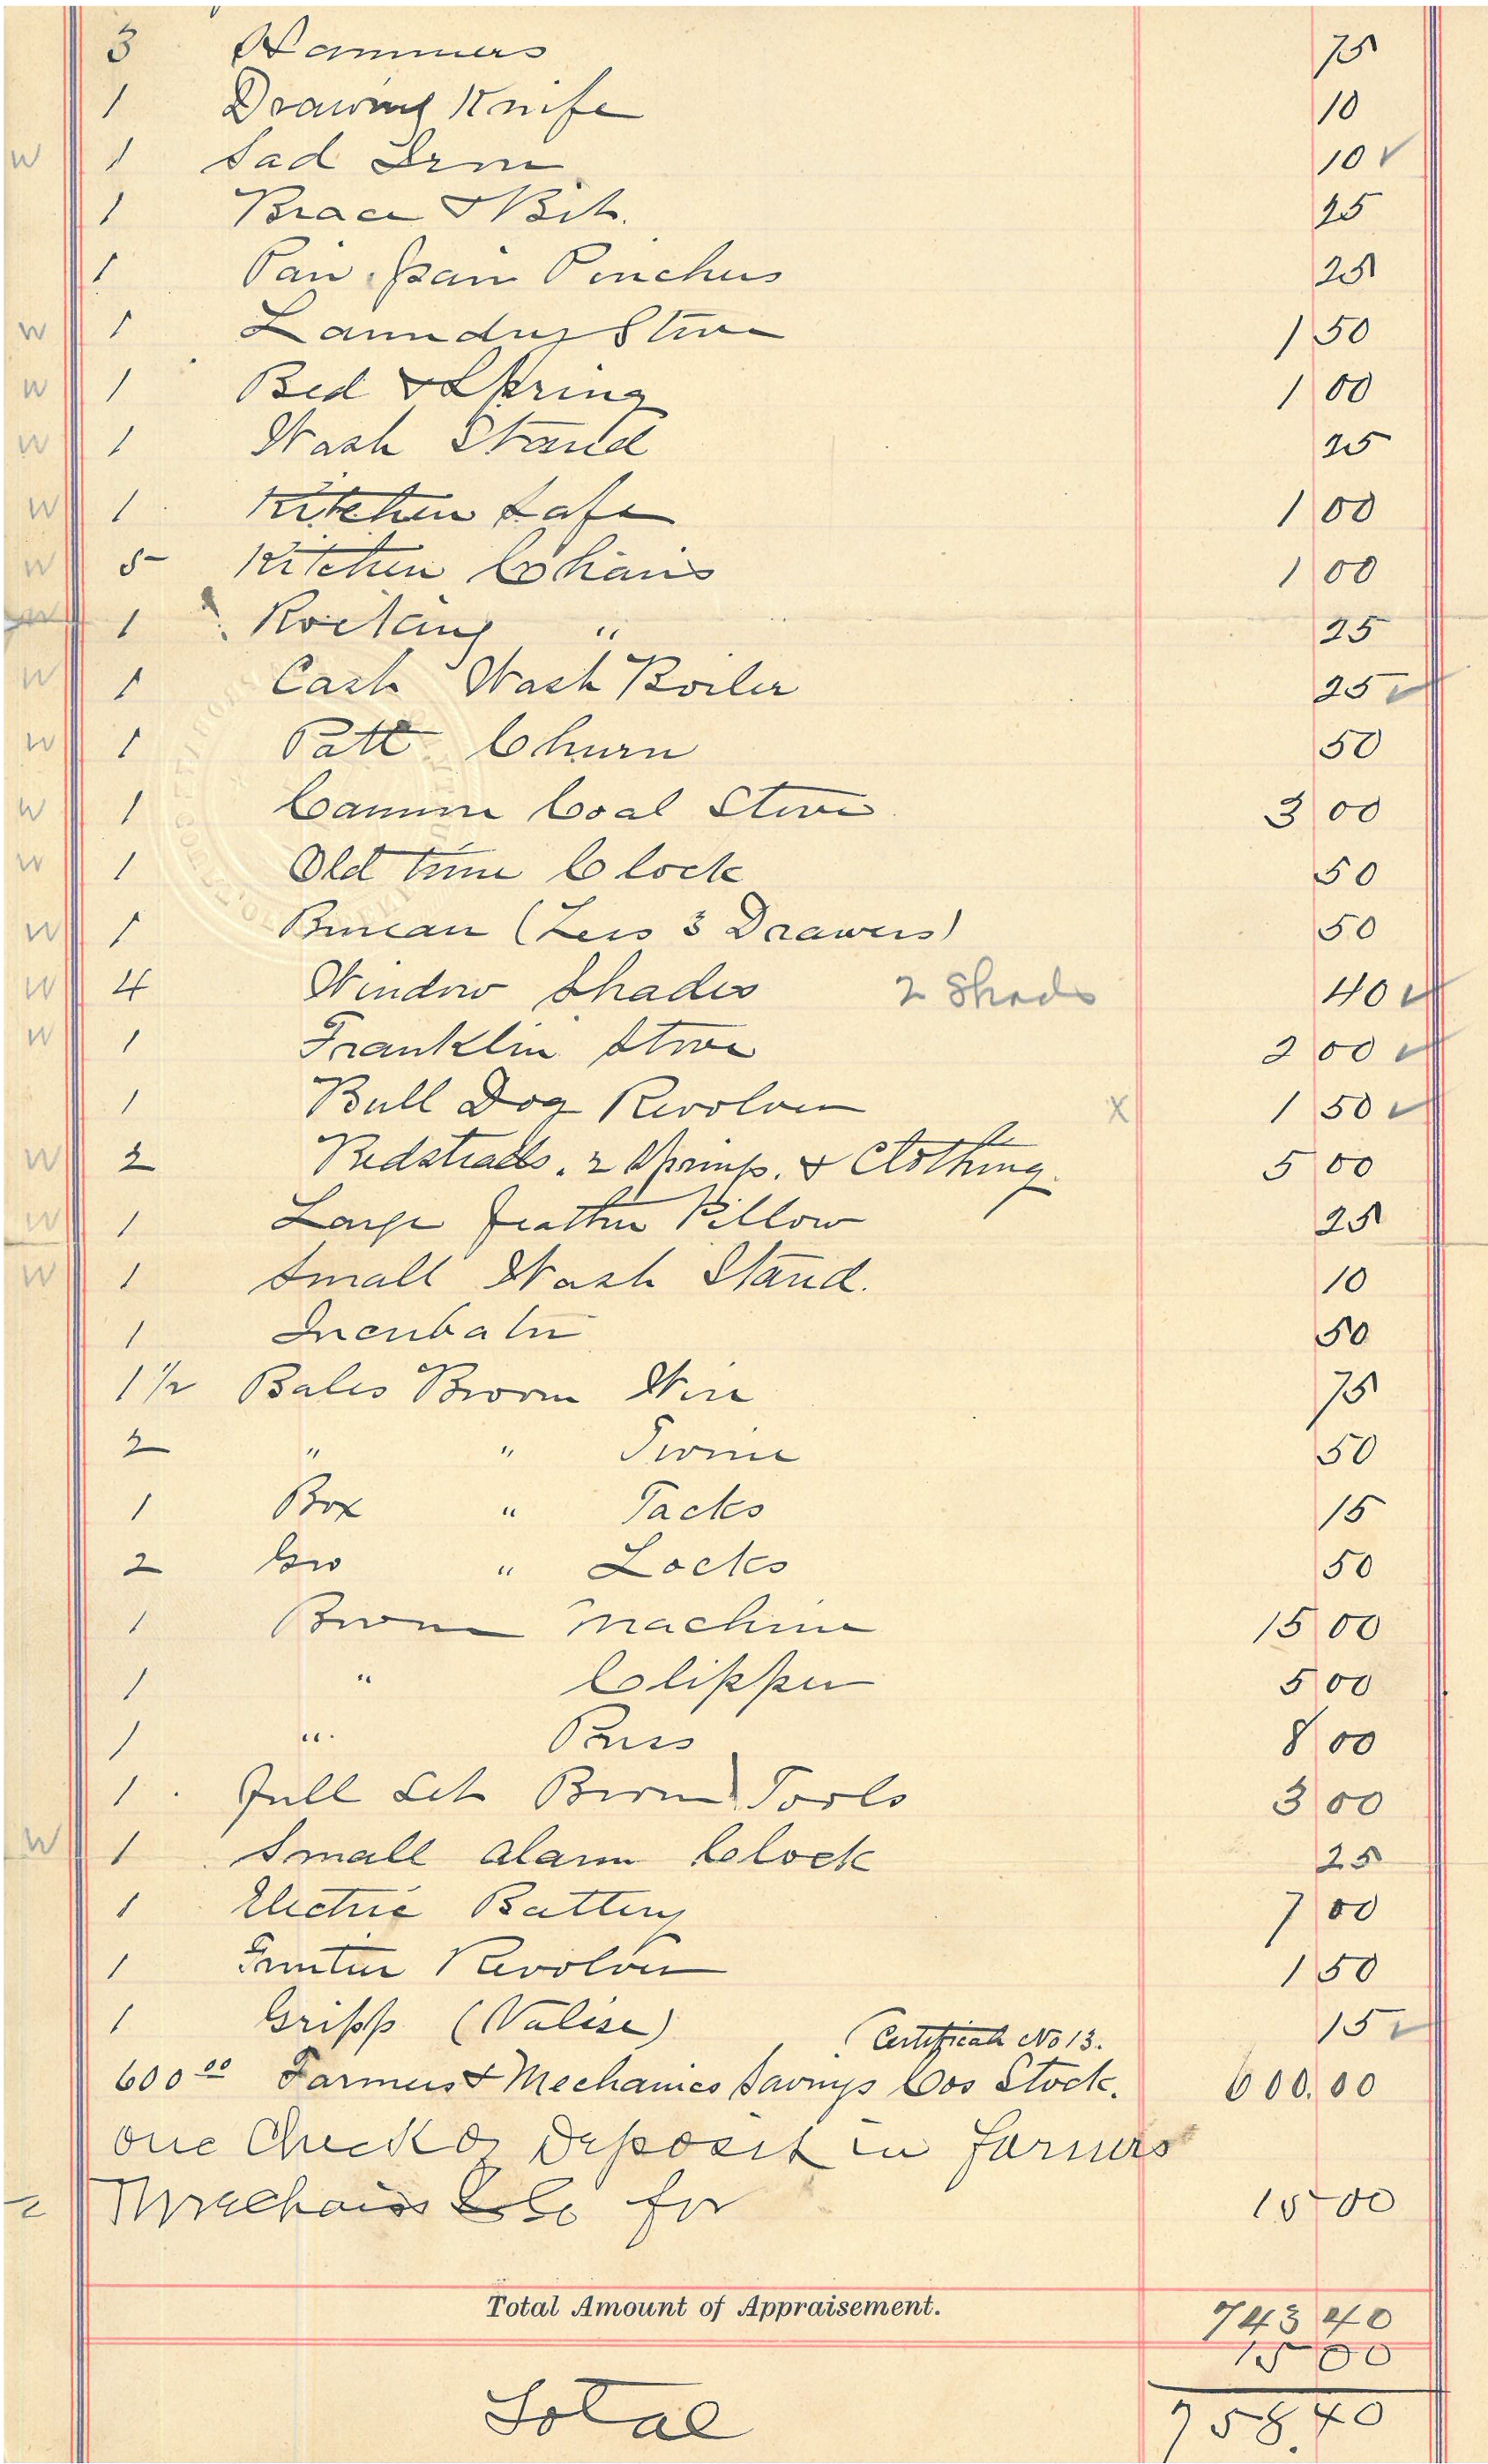 3 Hammers 75
1 Drawing Knife 10
W 1 Sad Iron 10 ✓
1 Brace & Bit. 25
1 Pair Pinchers 25
W 1 Laundry Stove 1 50
W 1 Bed & Spring 1 00
W 1 Wash Stand 25
W 1 Kitchen Safe 1 00
W 5 Kitchen Chairs 1 00
W 1 Rocking " 25
W 1 Wash Boiler 25 ✓
W 1 Patt Churn 50
W 1 Coal Stove 3 00
W 1 Old time Clock 50
W 1 Bureau (Less 3 Drawers) 50
W 4 Window Shades 2 Shads 40 ✓
W 1 Franklin Stove 2 00 ✓
1 Bull Dog Revolver X 1 50 ✓
W 2 Bedsteads. 2 Springs. & Clothing. 5 00
W 1 Large feather Pillow 25
W 1 Small Wash Stand. 10
1 Incubator 50
1½ Bales Broom Wire 75
2 " " Twine 50
1 Box " Tacks 15
2 Gro " Locks 50
1 Broom Machine 15 00
1 " Clipper 5 00
1 " Press 8 00
1 full Set Broom Tools 3 00
W 1 Small Alarm Clock 25
1 Electric Battery 7 00
1 Revolver 1 50
1 Gripp (Valise) 15 ✓
(Certificate No 13.
600 00 Farmers & Mechanics Savings Cos Stock. 600.00
one Check of Deposit in farmers
Mechanis Co for 15 00
Total Amount of Appraisement. 743 40
15 00
Total 758.40